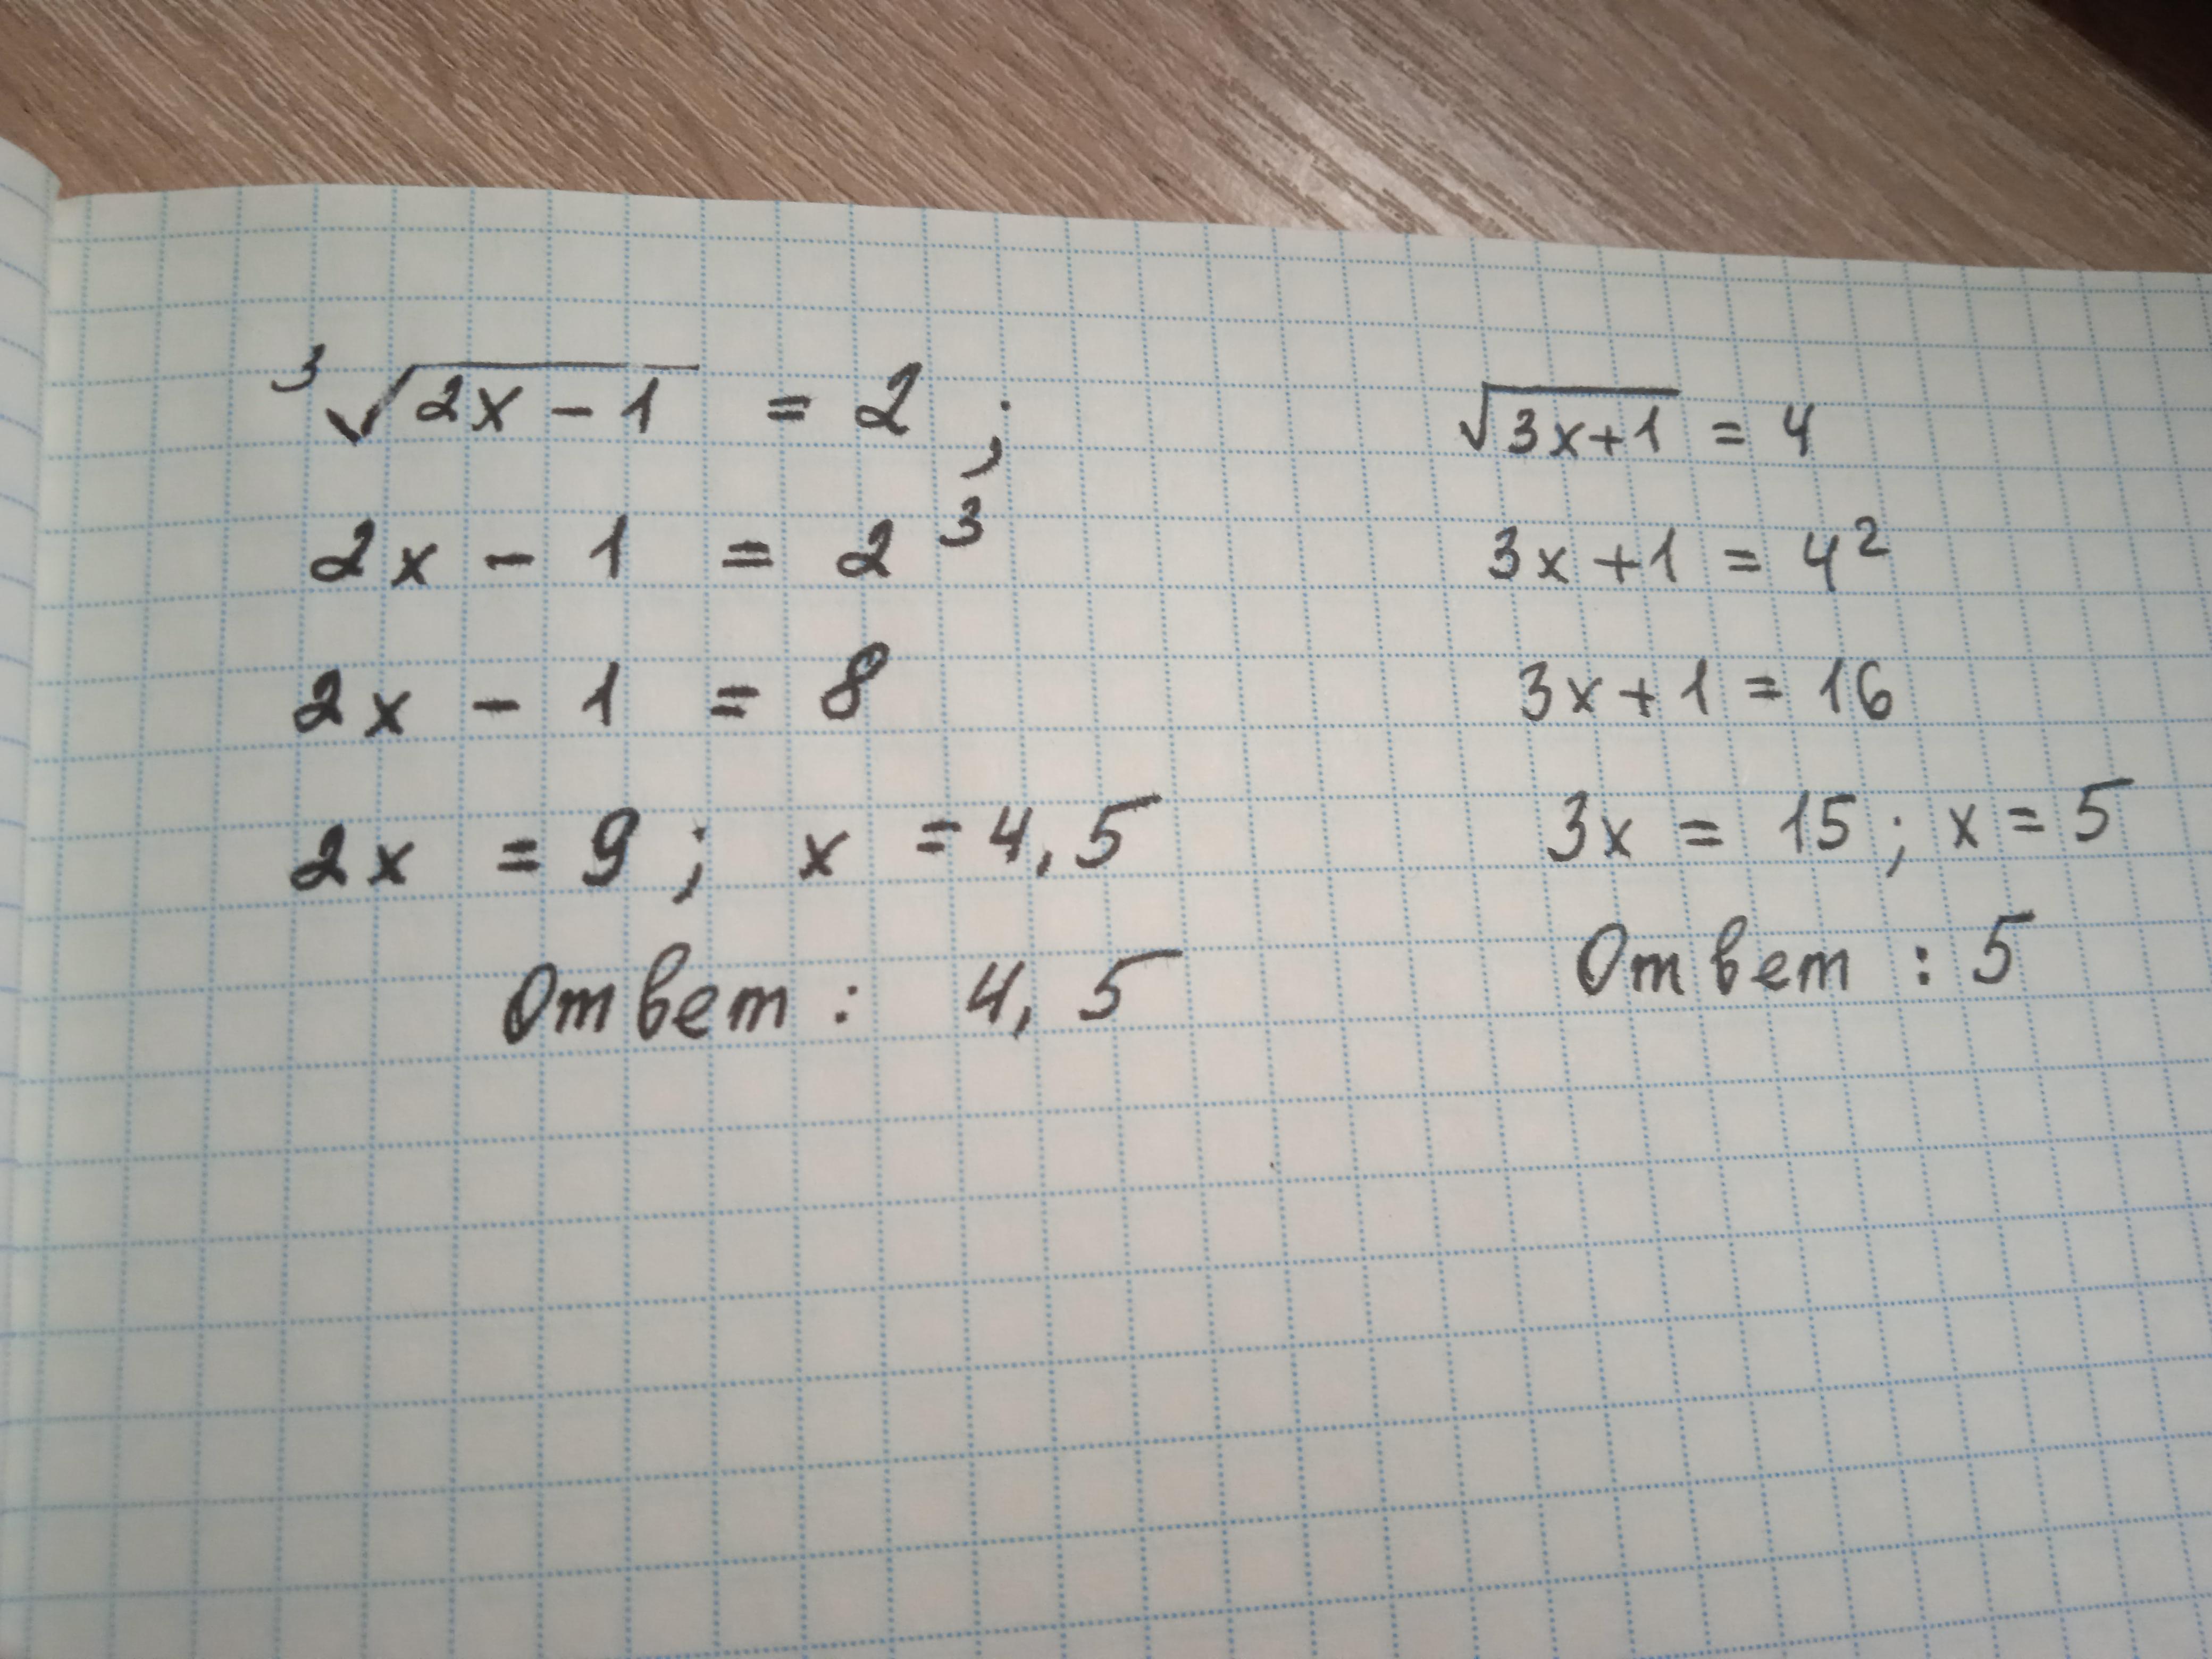 ³√2x - 1 = 2 ;
2x - 1 = 2³
2x - 1 = 8
2x = 9 ; x = 4,5
Ответ : 4,5
√3x+1 = 4
3x +1 = 4²
3x + 1 = 16
3x = 15 ; x = 5
Ответ : 5